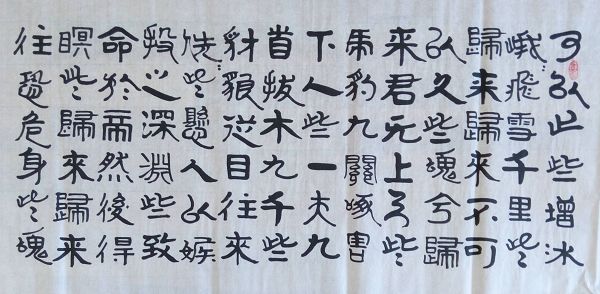 可以止些增冰
峨〻飛雪千里些
歸来歸来不可
以久些魂兮歸
来君无上天些
虎豹九關啄害
下人些一夫九
首拔木九千些
豺狼從目往来
侁〻些懸人以娭
投之深淵些致
命於帝然後得
瞑些歸来歸来
往恐危身些魂